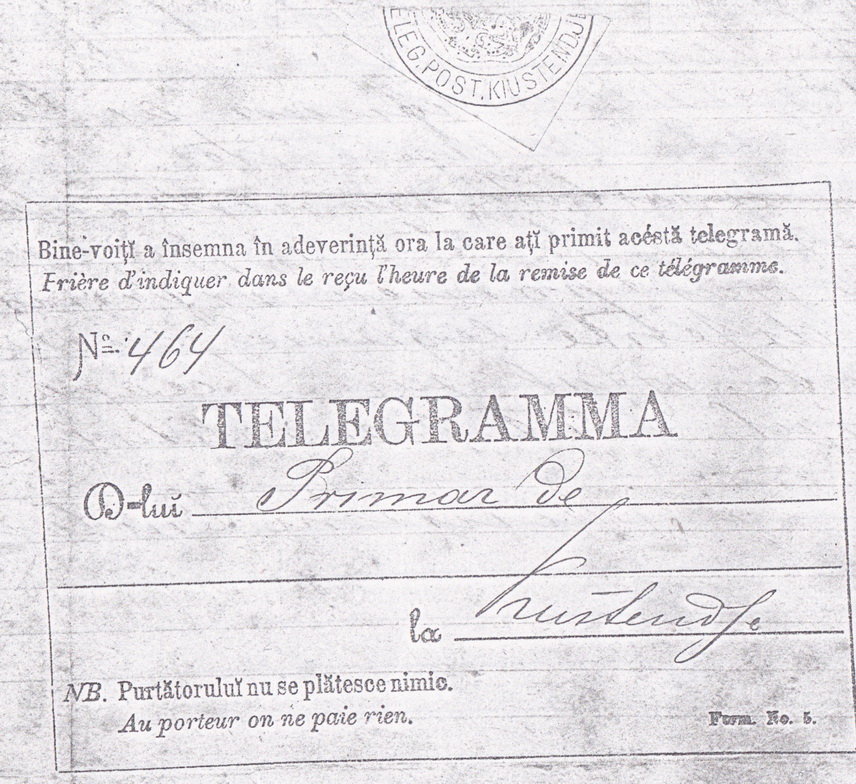 ELEG. POST. KIUSTENDJE
Bine-voițĭ a însemna în adeverință ora la care ațĭ primit acéstă telegramă.
Frière d'indiquer dans le reçu l'heure de la remise de ce télégramme.
No. 464
TELEGRAMMA
D-luĭ Primar de
la Kustendje
NB. Purtătoruluĭ nu se plătesce nimic.
Au porteur on ne paie rien.
Form. No. 5.